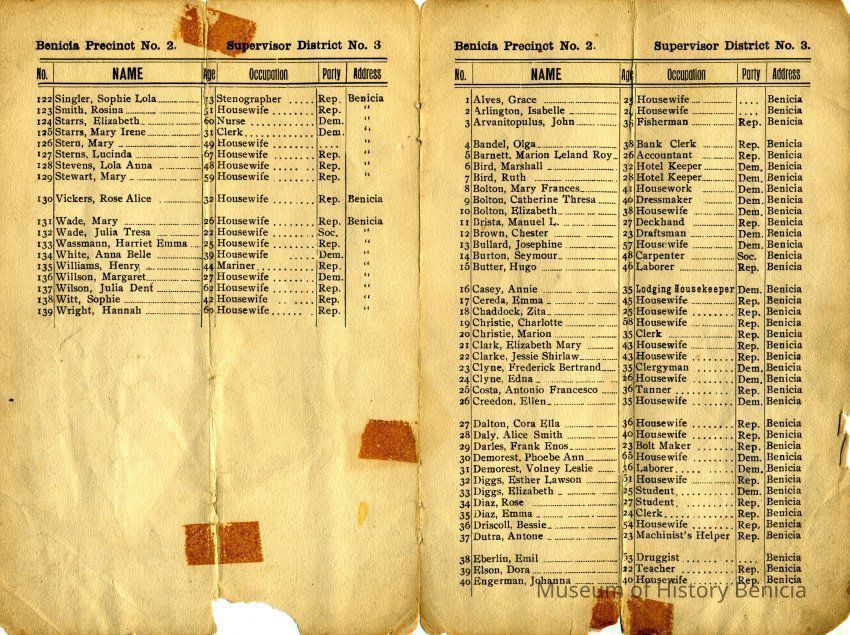 Benicia Precinct No. 2. Supervisor District No. 3
No. NAME Age Occupation Party Address
122 Singler, Sophie Lola Stenographer Rep. Benicia
123 Smith, Rosina 51 Housewife Rep. “
124 Starrs, Elizabeth 60 Nurse Dem. “
125 Starrs, Mary Irene 31 Clerk Dem. “
126 Stern, Mary 49 Housewife .... “
127 Sterns, Lucinda 67 Housewife Rep. “
128 Stevens, Lola Anna 48 Housewife Rep. “
129 Stewart, Mary 59 Housewife Rep. “
130 Vickers, Rose Alice 32 Housewife Rep. Benicia
131 Wade, Mary 26 Housewife Rep. Benicia
132 Wade, Julia Tresa 22 Housewife Soc. “
133 Wassmann, Harriet Emma 25 Housewife Rep. “
134 White, Anna Belle 39 Housewife Dem. “
135 Williams, Henry 44 Mariner Rep. “
136 Willson, Margaret 27 Housewife Dem. “
137 Wilson, Julia Dent 62 Housewife Rep. “
138 Witt, Sophie 42 Housewife Rep. “
139 Wright, Hannah 69 Housewife Rep. “
Benicia Precinct No. 2. Supervisor District No. 3.
No. NAME Age Occupation Party Address
1 Alves, Grace Housewife .... Benicia
2 Arlington, Isabelle Housewife .... Benicia
3 Arvanitopulus, John Fisherman Rep. Benicia
4 Bandel, Olga 38 Bank Clerk Rep. Benicia
5 Barnett, Marion Leland Roy 26 Accountant Rep. Benicia
6 Bird, Marshall 32 Hotel Keeper Dem. Benicia
7 Bird, Ruth 28 Hotel Keeper Dem. Benicia
8 Bolton, Mary Frances 41 Housework Dem. Benicia
9 Bolton, Catherine Thresa 40 Dressmaker Dem. Benicia
10 Bolton, Elizabeth 38 Housewife Dem. Benicia
11 Brista, Manuel L. 27 Deckhand Rep. Benicia
12 Brown, Chester 23 Draftsman Dem. Benicia
13 Bullard, Josephine 57 Housewife Dem. Benicia
14 Burton, Seymour 48 Carpenter Soc. Benicia
15 Butter, Hugo 46 Laborer Rep. Benicia
16 Casey, Annie 35 Lodging Housekeeper Dem. Benicia
17 Cereda, Emma 45 Housewife Rep. Benicia
18 Chaddock, Zita 25 Housewife Rep. Benicia
19 Christie, Charlotte 58 Housewife Rep. Benicia
20 Christie, Marion 35 Clerk Rep. Benicia
21 Clark, Elizabeth Mary 43 Housewife Rep. Benicia
22 Clarke, Jessie Shirlaw 43 Housewife Rep. Benicia
23 Clyne, Frederick Bertrand 35 Clergyman Dem. Benicia
24 Clyne, Edna 26 Housewife Dem. Benicia
25 Costa, Antonio Francesco 36 Tanner Rep. Benicia
26 Creedon, Ellen 35 Housewife Dem. Benicia
27 Dalton, Cora Ella 36 Housewife Rep. Benicia
28 Daly, Alice Smith 40 Housewife Rep. Benicia
29 Darles, Frank Enos 23 Bolt Maker Rep. Benicia
30 Demorest, Phoebe Ann 65 Housewife Dem. Benicia
31 Demorest, Volney Leslie 36 Laborer Dem. Benicia
32 Diggs, Esther Lawson 51 Housewife Rep. Benicia
33 Diggs, Elizabeth 25 Student Dem. Benicia
34 Diaz, Rose 27 Student Rep. Benicia
35 Diaz, Emma 24 Clerk Rep. Benicia
36 Driscoll, Bessie 54 Housewife Rep. Benicia
37 Dutra, Antone 23 Machinist's Helper Rep. Benicia
38 Eberlin, Emil 53 Druggist .... Benicia
39 Elson, Dora 22 Teacher Rep. Benicia
40 Engerman, Johanna 40 Housewife Rep. Benicia
Museum of History Benicia